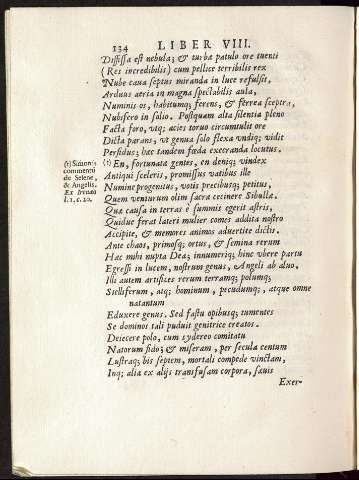 134 LIBER VIII.
Dississa est nebula; & turba patulo ore tuenti
(Res incredibilis) cum pellice terribilis rex
Nube caua septus miranda in luce refulsit,
Arduus aeria in magna spectabilis aula,
Numinis os, habitumq; ferens, & ferrea sceptra,
Nubifero in solio. Postquam alta silentia pleno
Facta foro, vtq; acies toruo circumtulit ore
Dicta parans, vt genua solo flexa vndiq; vidit
Perfidus; haec tandem foeda execranda locutus.
(1) En, fortunata gentes, en deniq; vindex
Antiqui sceleris, promissus vatibus ille
Numine progenitus, votis precibusq; petitus,
Quem venturum olim sacra cecinere Sibulla.
Qua causa in terras è summis egerit astris,
Quidue ferat lateri mulier comes addita nostro
Accipite, & memores animos aduertite dictis.
Ante chaos, primosq; ortus, & semina rerum
Hac mihi nupta Dea; innumeriq; hinc vbere partu
Egressi in lucem, nostrum genus, Angeli ab aluo.
Illi autem artifices rerum terramq; polumq;
Stelliferum, atq; hominum, pecudumq;, atque omne
natantum
Eduxere genus. Sed fastu opibusq; tumentes
Se dominos tali puduit genitrice creatos.
Deiecere polo, cum sydereo comitatu
Natorum fido; & miseram, per secula centum
Lustraq; bis septem, mortali compede vinctam,
Inq; alia ex alijs transfusam corpora, saeuis
Exer-
(1) Simonis
commenti
de Selene,
& Angelis.
Ex Irenaeo
l. 1. c. 20.